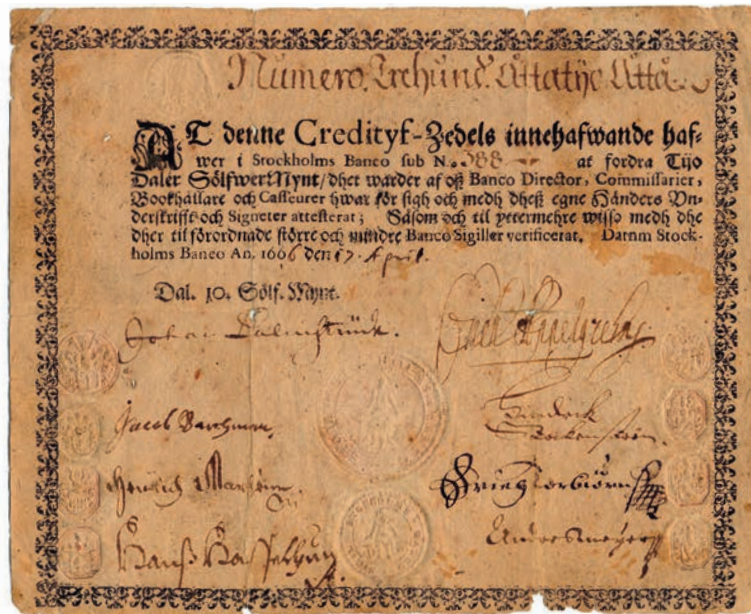 Numero. Trehund. Åttatijo Åtta
AT denne Credityf-Zedels innehafwande haf-
wer i Stockholms Banco sub N.o 388 at fordra Tijo
Daler SölfwerMynt/dhet warder af oß Banco Director, Commissarier,
Bookhållare och Casseurer hwar för sigh och medh dheß egne Händers Un-
derskrifft och Signeter attesterat; Såsom och til yttermehre wisso medh dhe
dher til förordnade större och mindre Banco Sigiller verificerat. Datum Stock-
holms Banco An. 1666 den 17. April.
Dal. 10. Sölf. Mynt.
Johan Palmstruck.
Jacob
Hendrick
Anders